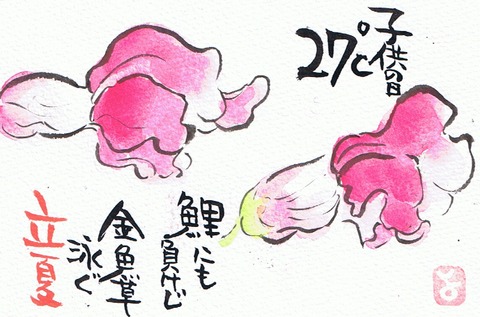 子供の日
27℃
鯉にも
負けじ
金魚草
泳ぐ
立夏